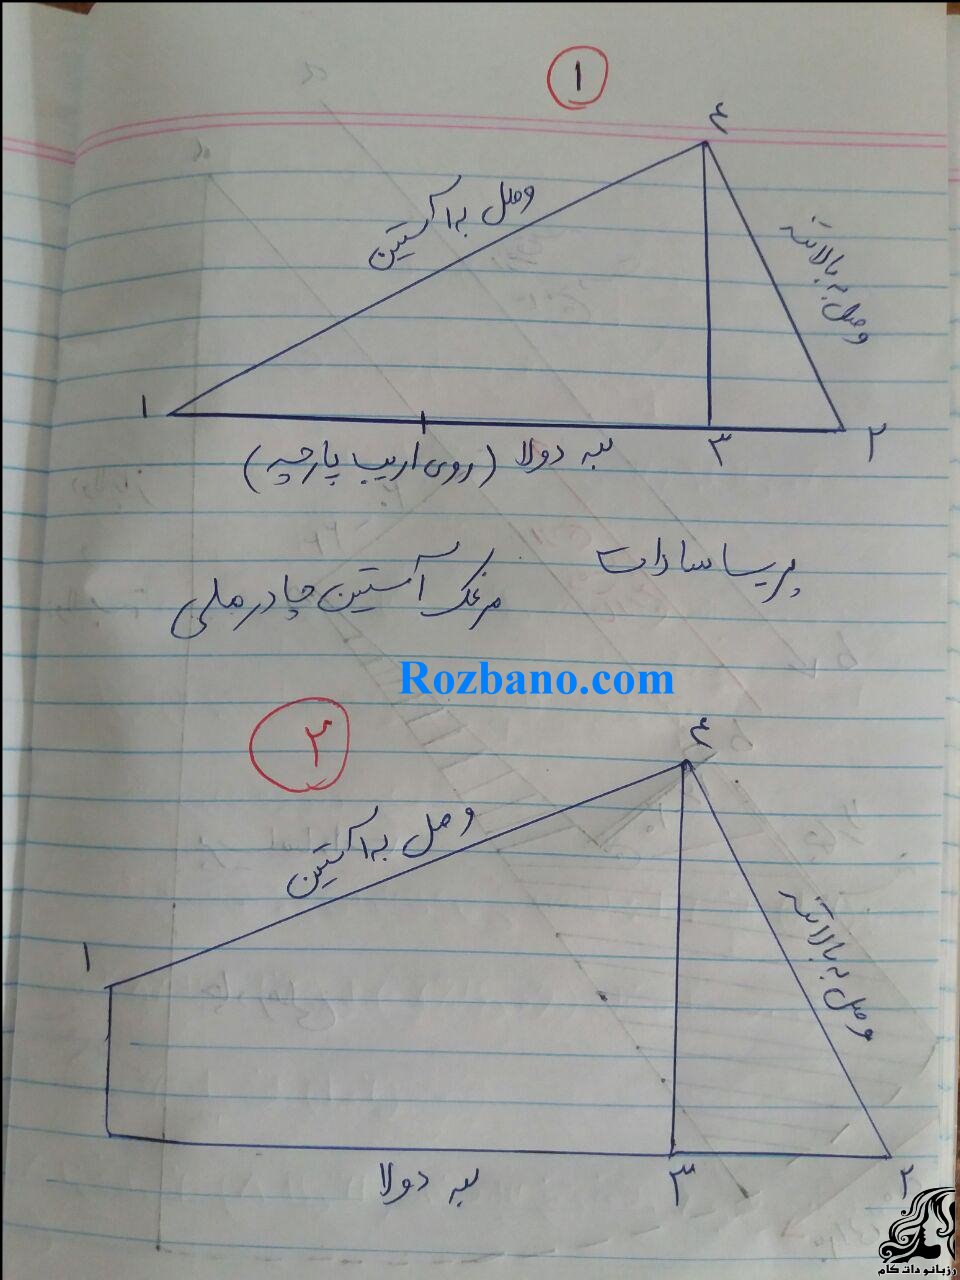 ۱
۴
وصل به آستین
وصل به بالاتنه
۱
۳
۲
لبه دولا (روی اریب پارچه)
پریسا سادات
مرغک آستین چادر ملی
Rozbano.com
۲
۴
وصل به آستین
وصل به بالاتنه
۱
۳
۲
لبه دولا
رزبانو دات کام